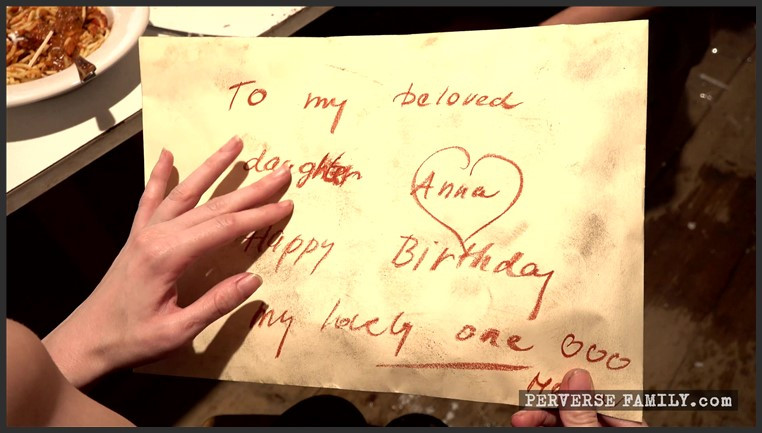 To my beloved
daughter Anna
Happy Birthday
my lovely one ooo
PERVERSE FAMILY.com